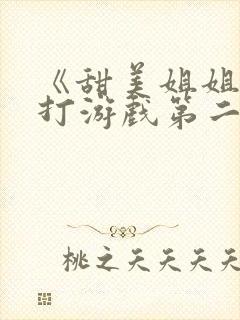 《甜美姐姐
打游戏第二
桃之夭夭夭夭